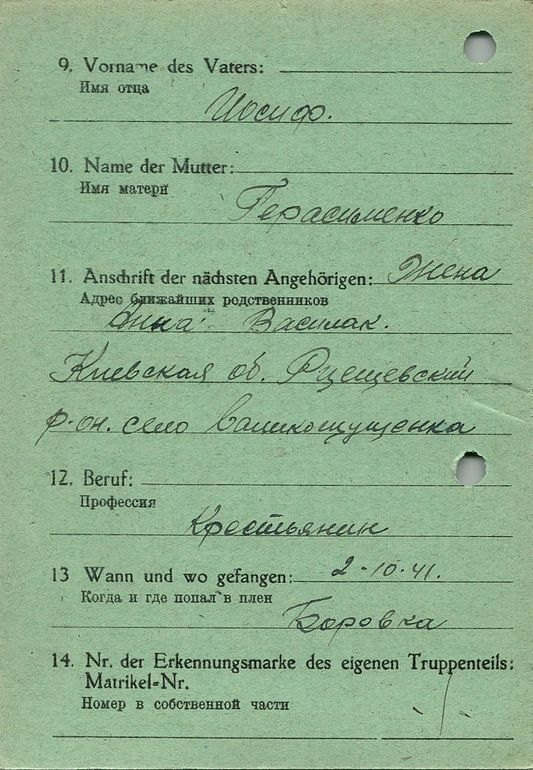 9. Vorname des Vaters:
Имя отца
Иосиф.
10. Name der Mutter:
Имя матери
Герасименко
11. Anschrift der nächsten Angehörigen: Жена
Адрес ближайших родственников
Анна Василак.
Киевская об. Ржещевский
р-он. село
12. Beruf:
Профессия
Крестьянин
13 Wann und wo gefangen: 2-10-41.
Когда и где попал в плен
Боровка
14. Nr. der Erkennungsmarke des eigenen Truppenteils:
Matrikel-Nr.
Номер в собственной части